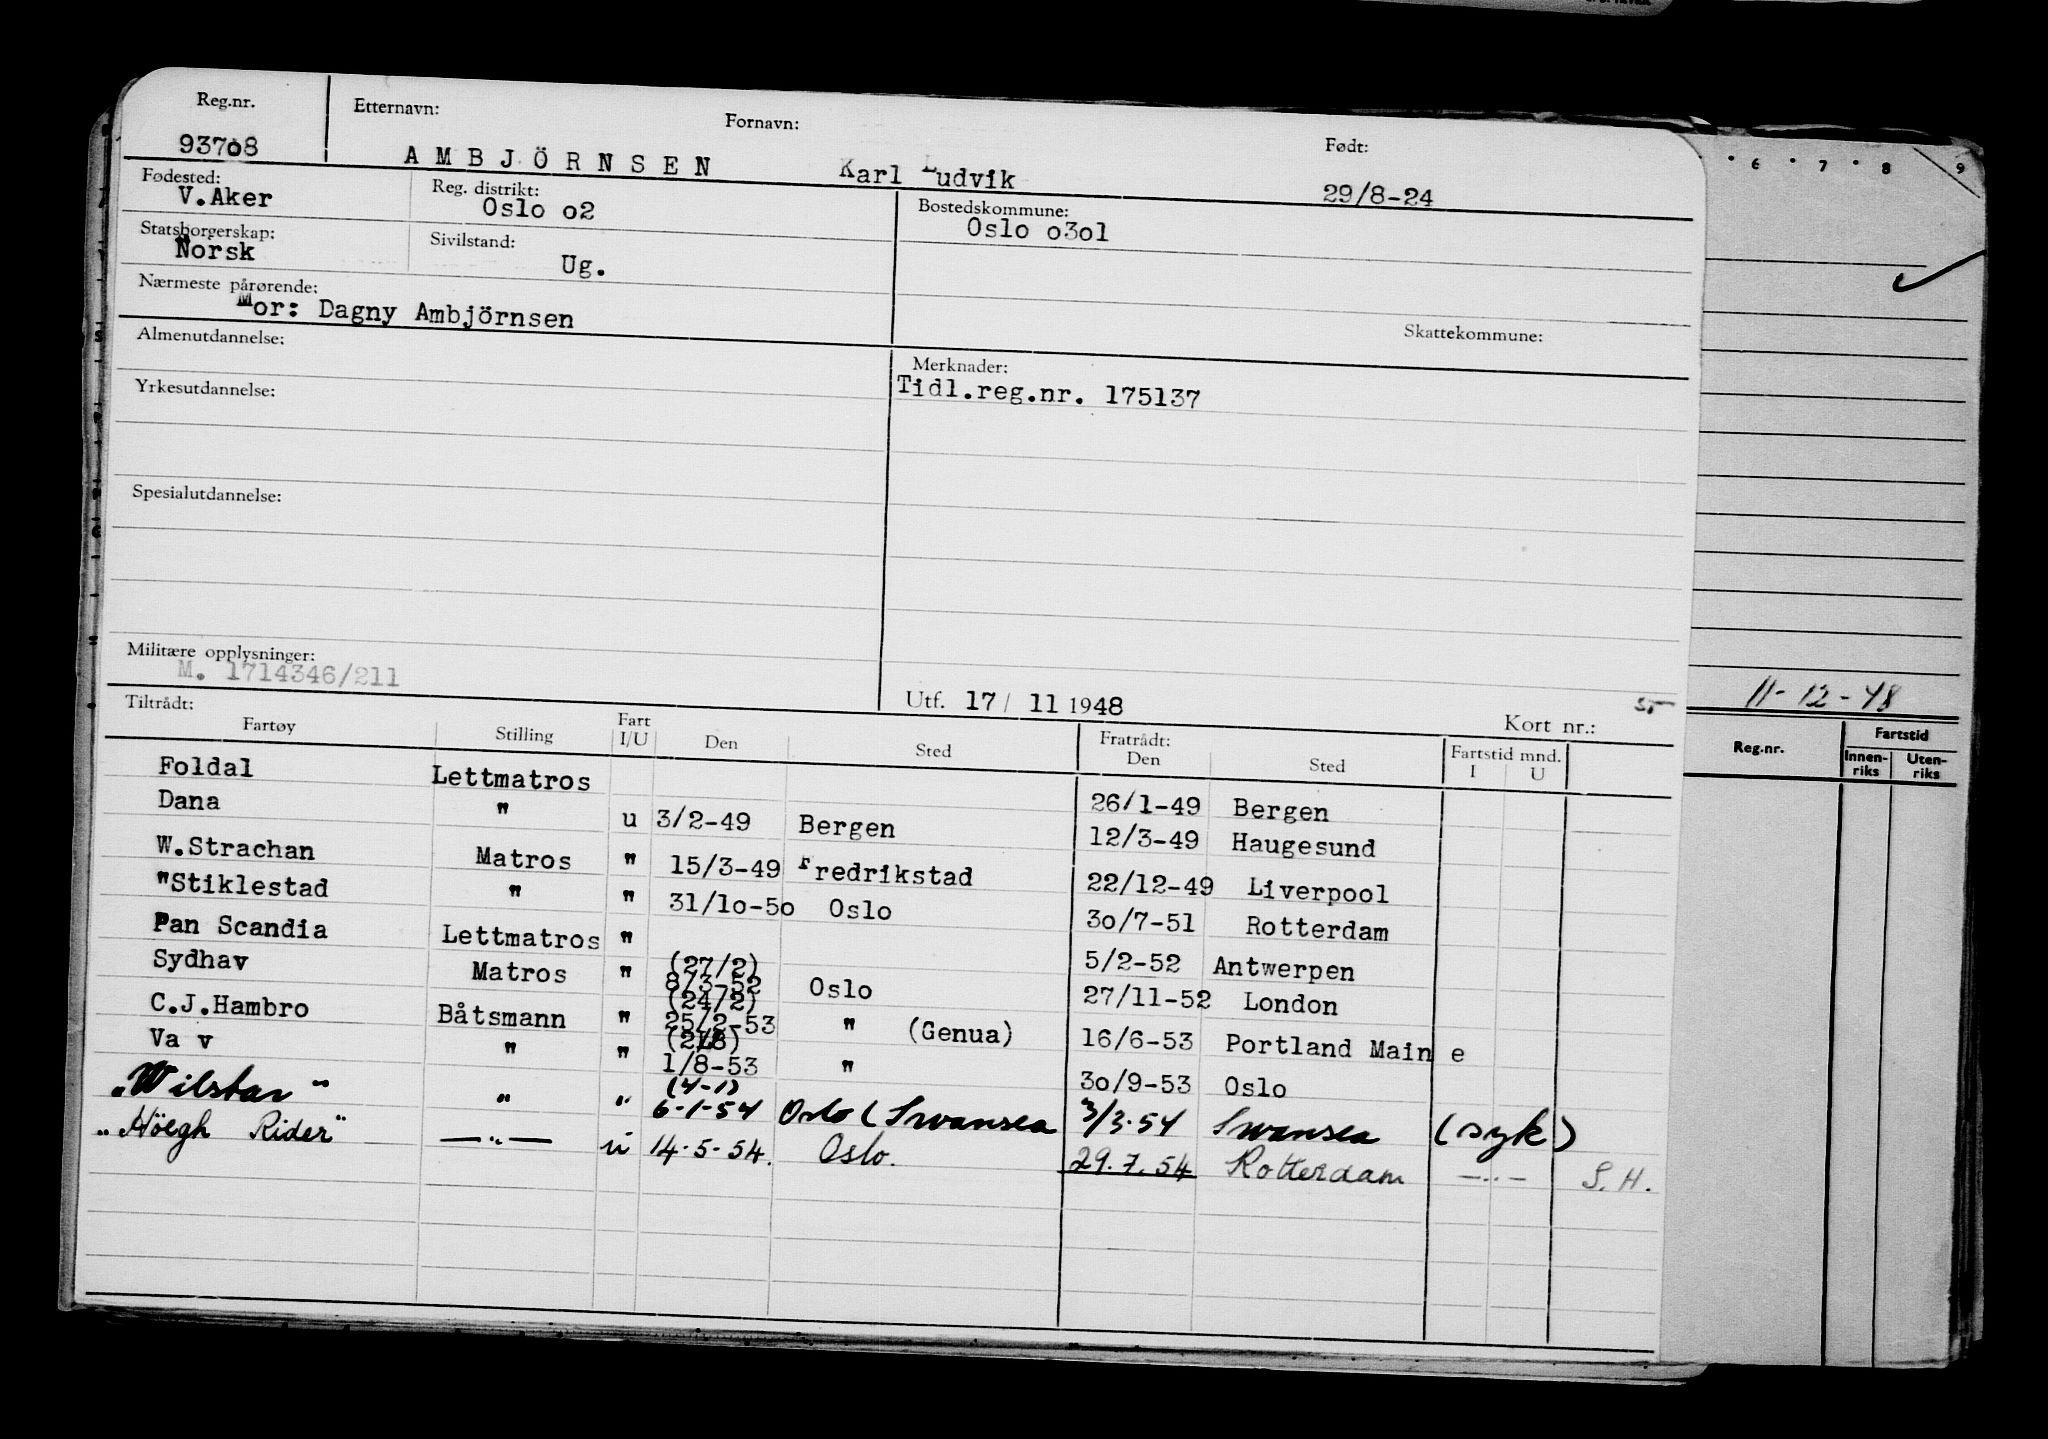 Reg.nr. Etternavn: Fornavn: Født:
93708 AMBJÖRNSEN Karl Ludvik 29/8-24
Fødested: Reg. distrikt: Bostedskommune:
V.Aker Oslo o2 Oslo o3o1
Statsborgerskap: Sivilstand:
Norsk Ug.
Nærmeste pårørende:
Mor: Dagny Ambjörnsen
Skattekommune:
Almenutdannelse: Merknader:
Tidl.reg.nr. 175137
Yrkesutdannelse:
Spesialutdannelse:
Militære opplysninger:
M. 1714346/211
Utf. 17/ 11 1948 Kort nr.:
Tiltrådt: Fratrådt:
Fartøy Stilling Fart I/U Den Sted Den Sted Fartstid mnd. I U
Foldal Lettmatros 26/1-49 Bergen
Dana " u 3/2-49 Bergen 12/3-49 Haugesund
W.Strachan Matros " 15/3-49 Fredrikstad 22/12-49 Liverpool
"Stiklestad " " 31/1o-5o Oslo 3o/7-51 Rotterdam
Pan Scandia Lettmatros " 5/2-52 Antwerpen
Sydhav Matros " (27/2) 8/3-52 Oslo 27/11-52 London
C.J.Hambro Båtsmann " (24/2) 25/2-53 " (Genua) 16/6-53 Portland Main e
Va v " " 1/8-53 " 3o/9-53 Oslo
"Wilstar" " " (4-1) 6-1-54 Oslo (Swansea 3/3-54 Swansea (syk)
"Höegh Rider" —"— u 14-5-54. Oslo. 29.7.54 Rotterdam —"— S.H.
6 7 8 9
11-12-48
Reg.nr. Fartstid
Innen-riks Uten-riks